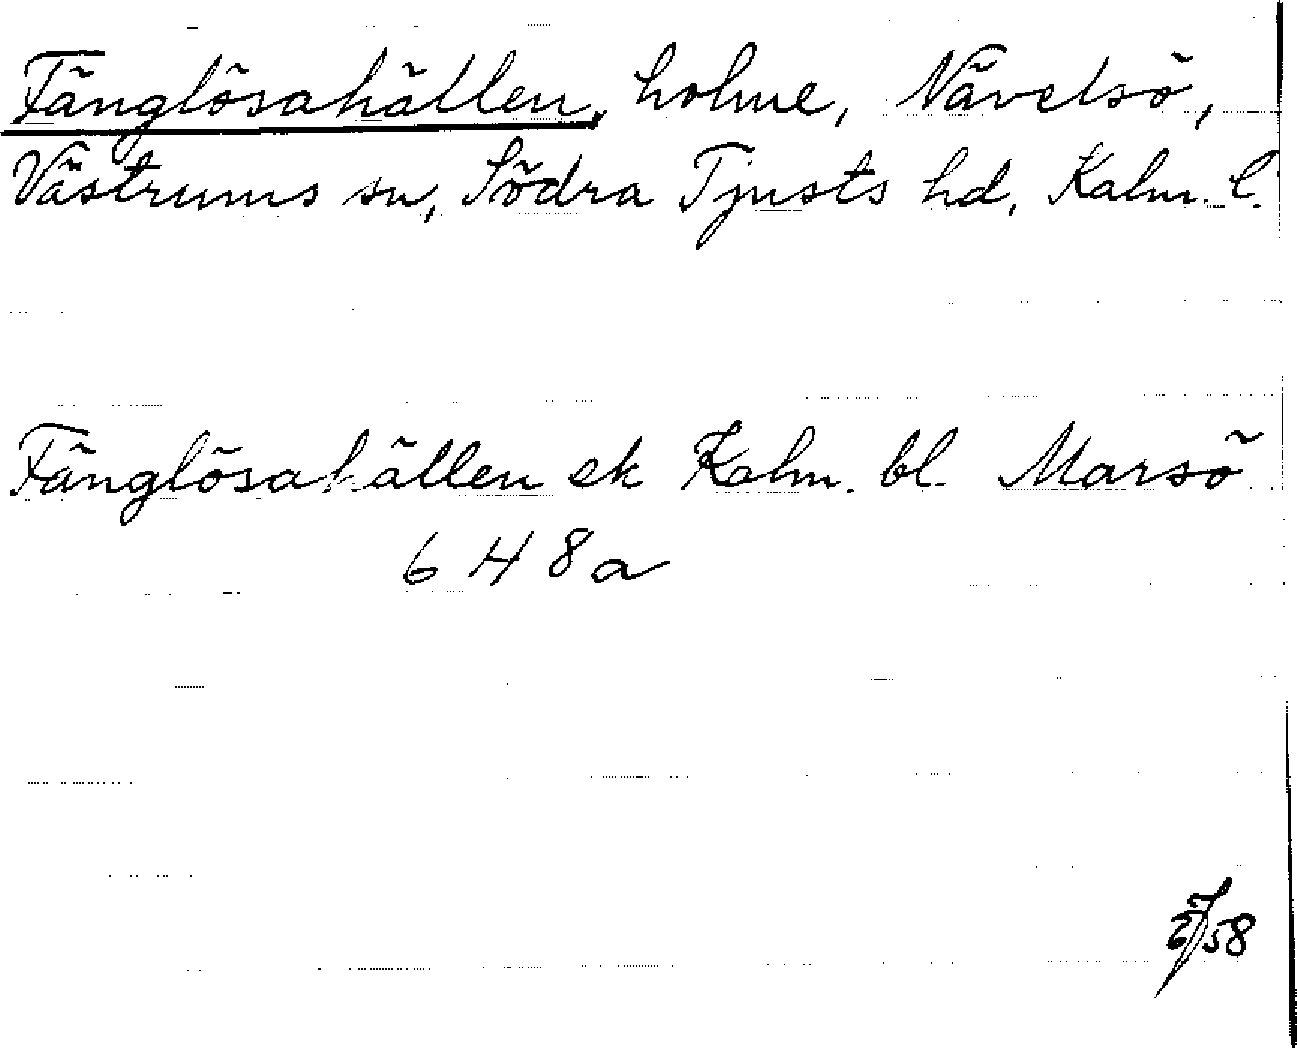 Fänglösahällen, holme, Nävelsö,
Västrums sn, Södra Tjusts hd, Kalm. l.
Fänglösahällen ek Kalm. bl. Marsö
6 H 8 a